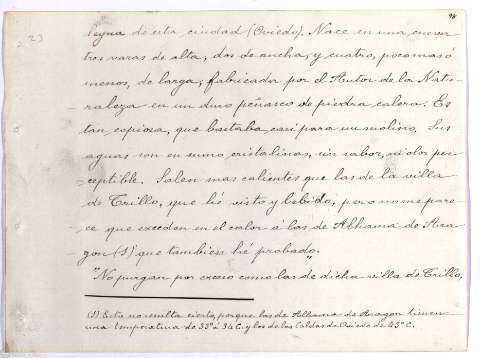 98
223
legua de esta ciudad (Oviedo). Nace en una cueva
tres varas de alta, dos de ancha, y cuatro, poco mas ó
menos, de larga, fabricada por el Autor de la Natu-
raleza en un duro peñasco de piedra calera. Es
tan copiosa, que bastaba casi para un molino. Sus
aguas son en sumo cristalinas, sin sabor, ni olor per-
ceptible. Salen mas calientes que las de la villa
de Trillo, que hé visto y bebido, pero no me pare-
ce que exceden en el calor á las de Alhama de Ara-
gon (1) que tambien hé probado.
"No purgan por exceso como las de dicha villa de Trillo,
(1) Esto no resulta cierto, porque las de Alhama de Aragon tienen
una temperatura de 33° á 34 C. y las de las Caldas de Oviedo de 43° C.